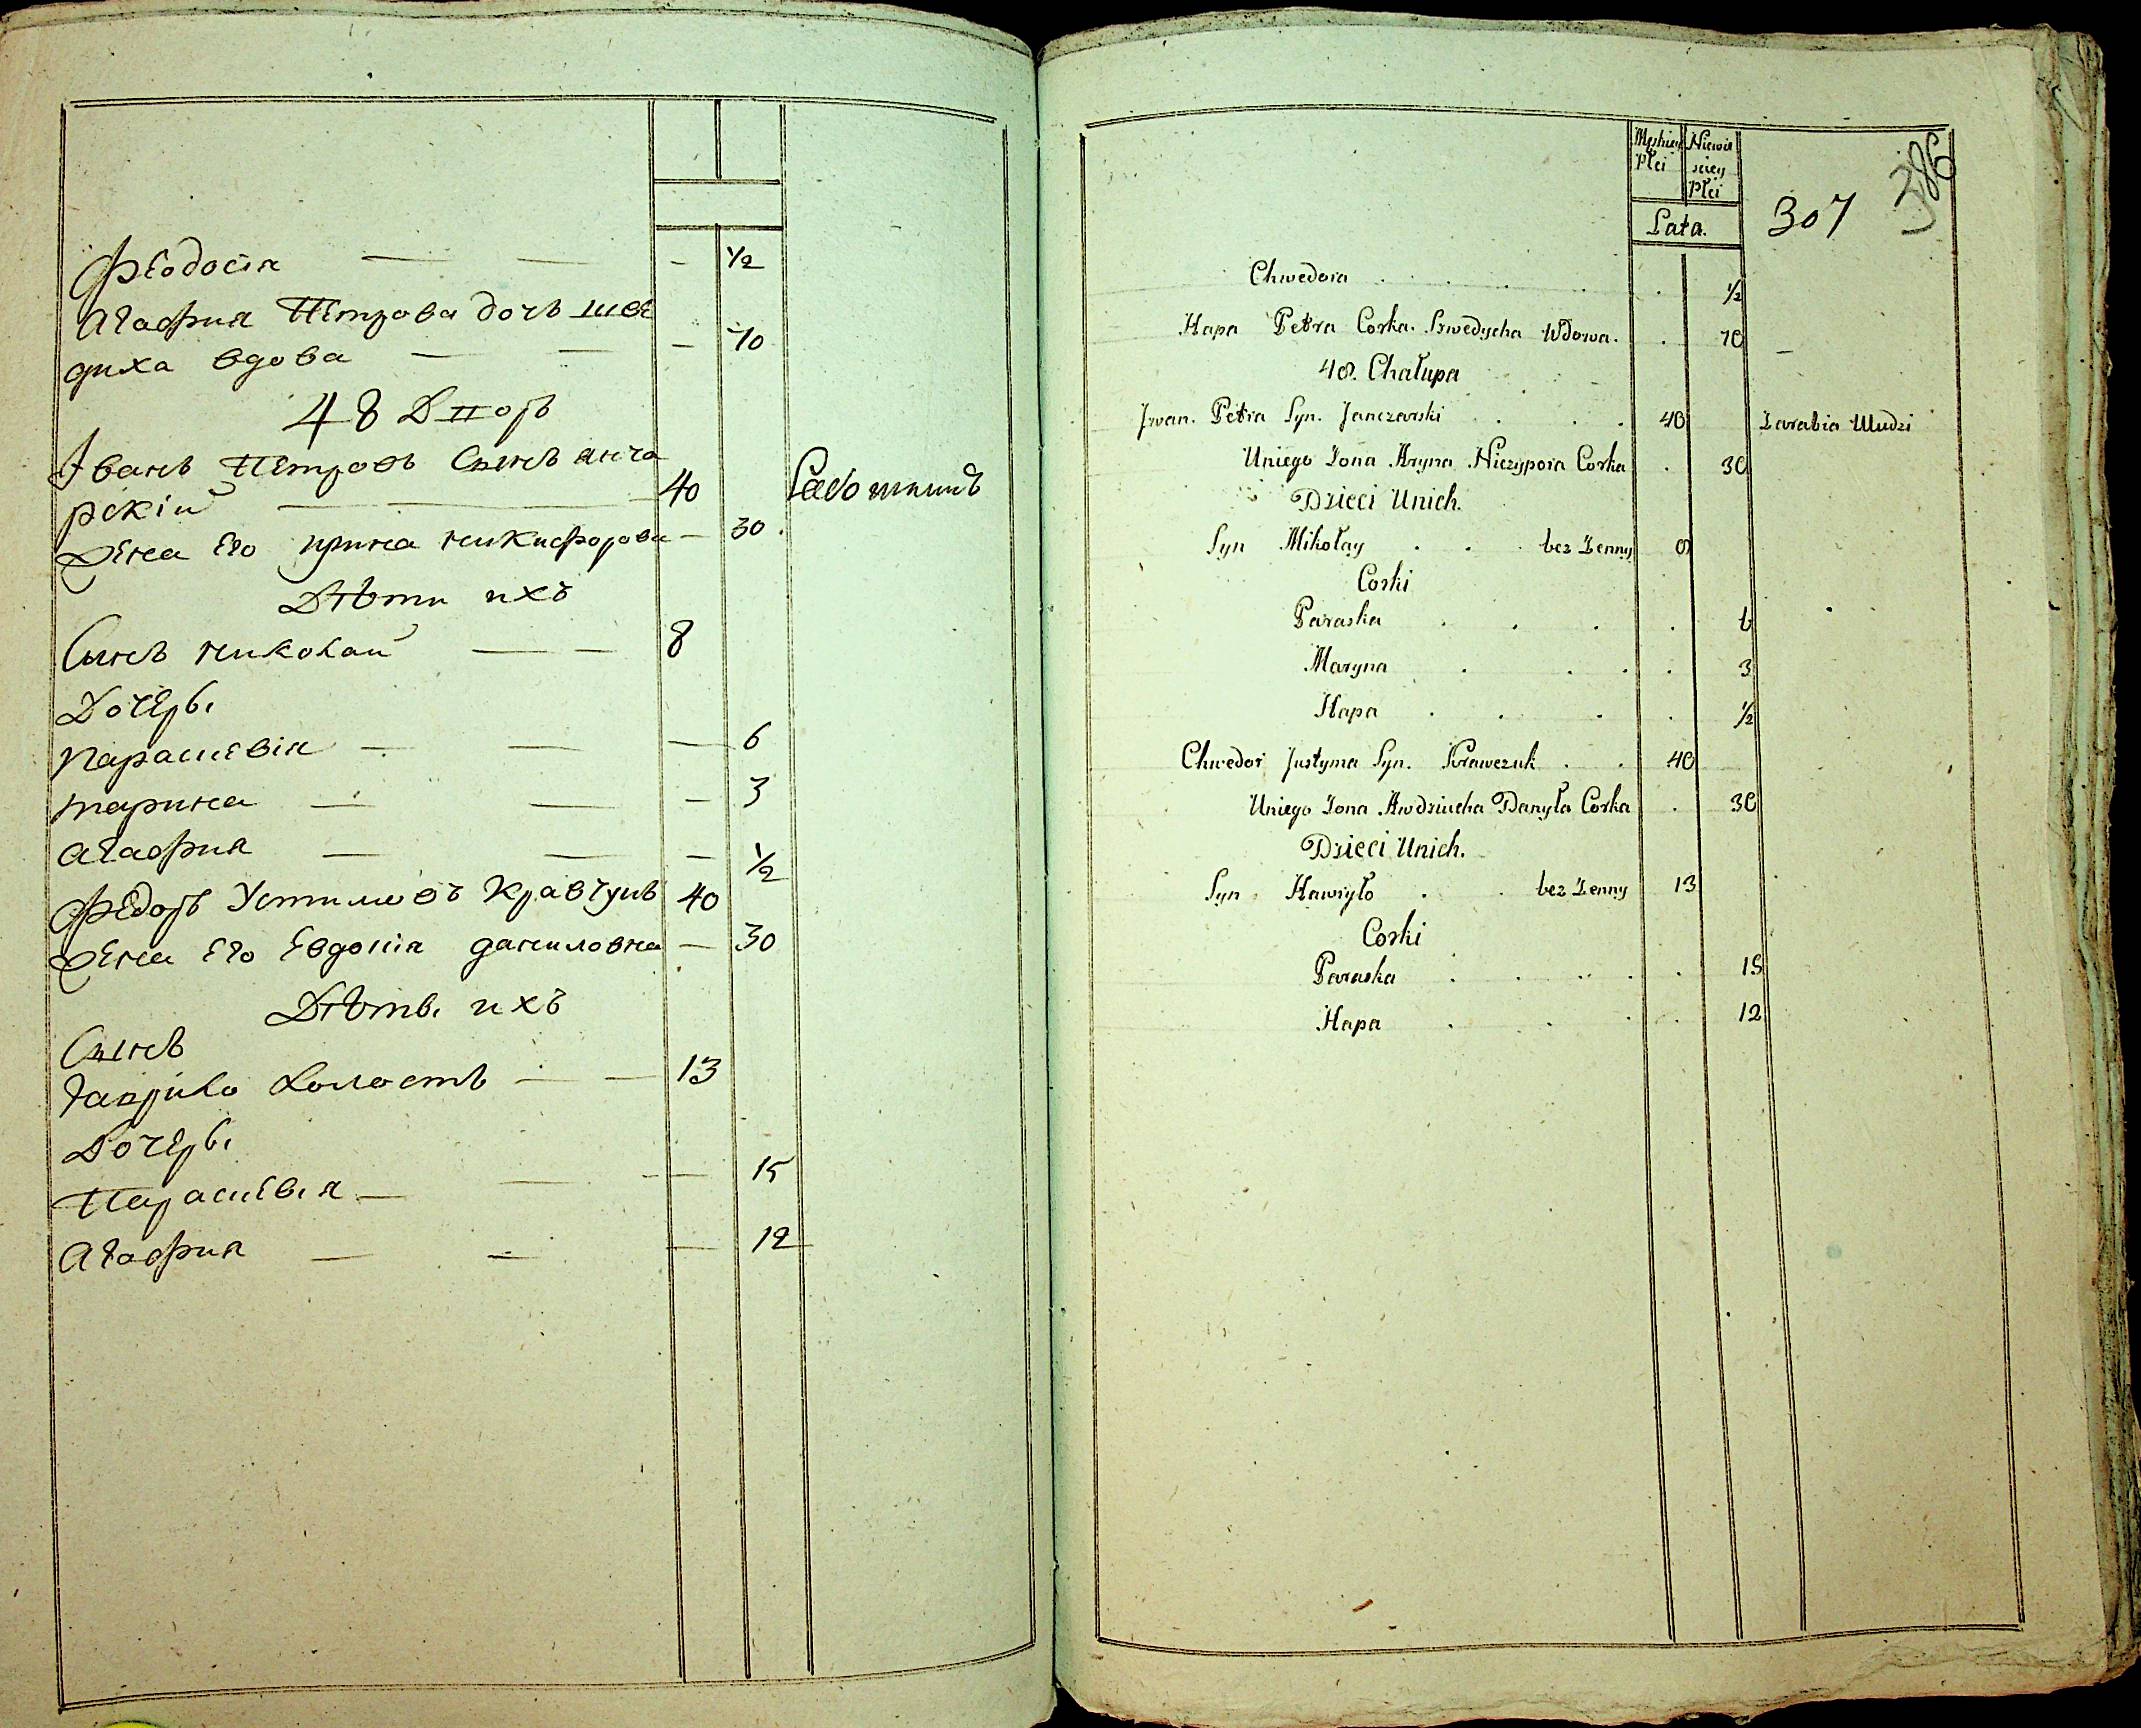 Феодосія — — — ½
Агафия Петрова дочь шве
диха вдова — — — 70
48 Дворъ
Іванъ Петровъ Сынъ янча
рскій — 40 Работникъ
Жена Его Ирина никифорова — 30
Дѣти ихъ
Сынъ николай — — 8
Дочерьі
парасшевія — — — 6
марина — — — 3
агафия — — — ½
Федоръ Устимовъ Кравчукъ 40
Жена Его Евдокія даниловна — 30
Дѣтьі ихъ
Сынъ
Гаврило холостъ — — 13
Дочерьі
Парасшевія — — — 15
Агафия — — — 12
Męskiey Płci Niewieściey Płci
Lata.
307
386
Chwedora . . . . . ½
Hapa Petra Corka. Szwedycha Wdowa. . 70 —
48. Chałupa
Jwan. Petra Syn. Janczarski . . . 40 Zarabia Uludzi
Uniego Żona Aryna Niczypora Corka . 30
Dzieci Unich.
Syn Mikołay . . bez Żenny 8
Corki
Paraska . . . . 6
Maryna . . . . 3
Hapa . . . . ½
Chwedor Justyma Syn. Krawczuk . . 40
Uniego Żona Awdziucha Danyła Corka . 30
Dzieci Unich.
Syn Hawryło . . bez Żenny 13
Corki
Paraska . . . . 15
Hapa . . . . 12